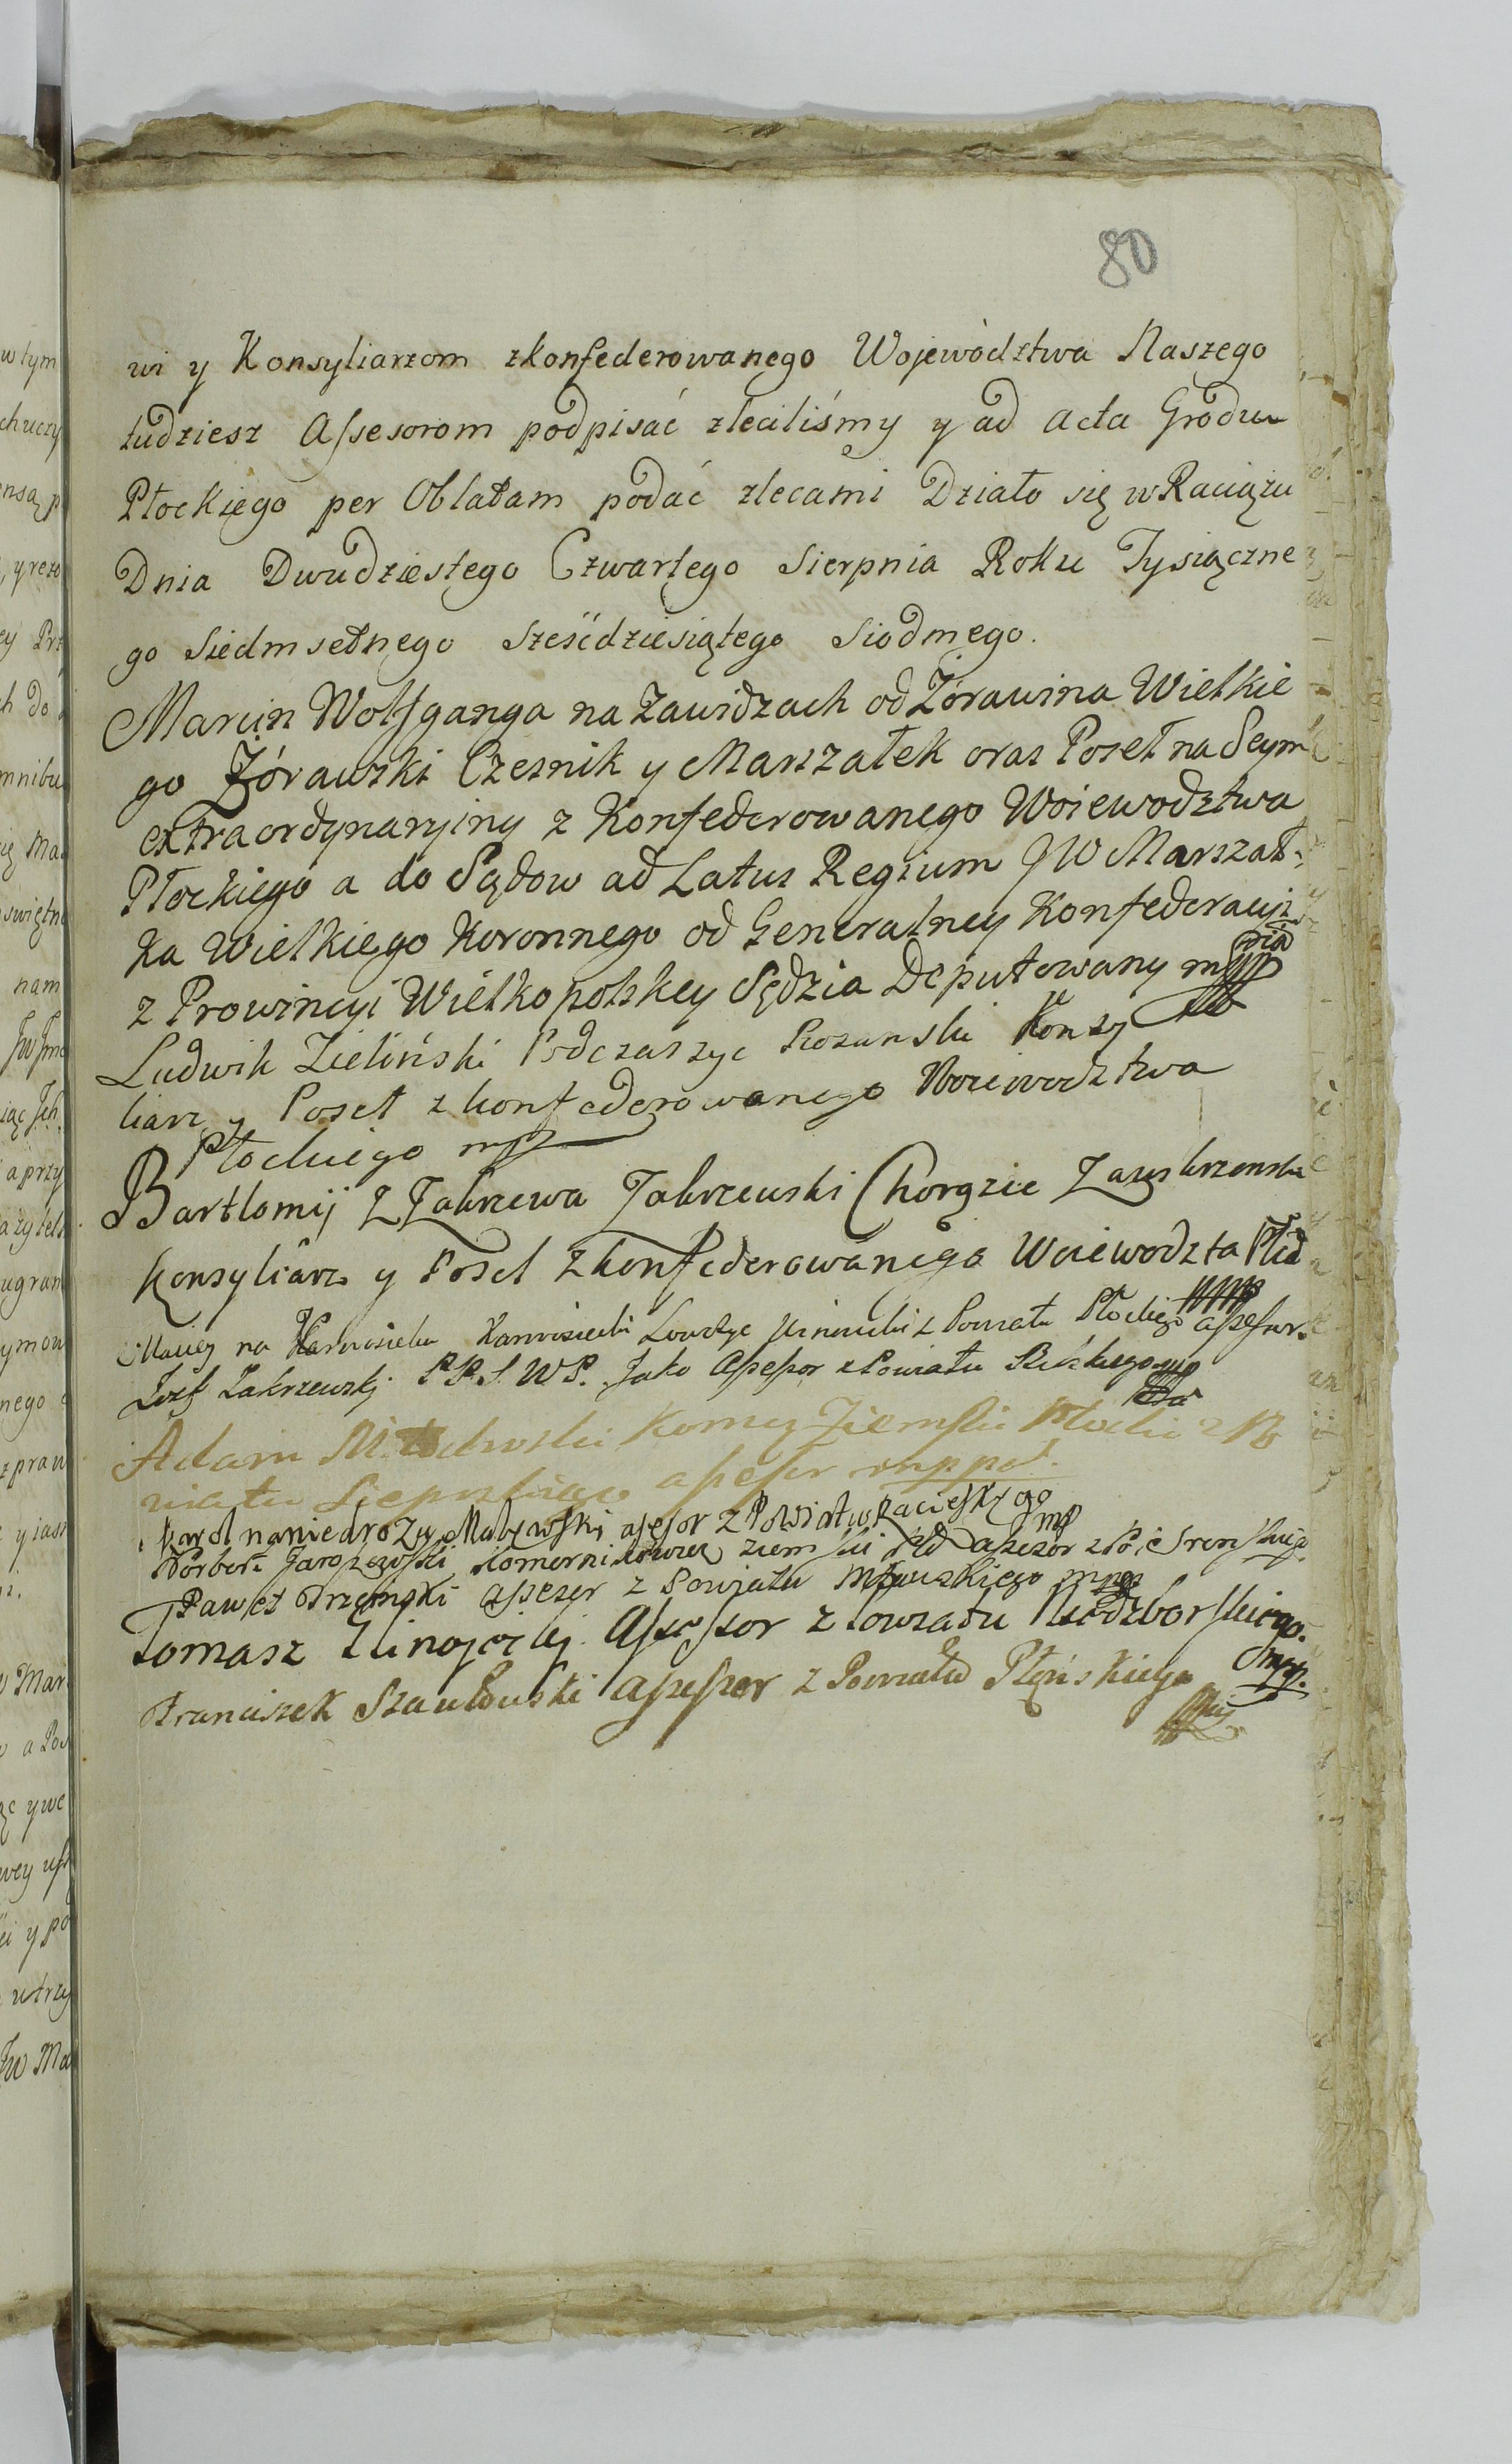 80
wi y Konsyliarzom zkonfederowanego Wojewòdztwa Naszego
tudziesz Assesorom podpisać zleciliśmy y ad Acta Grodu
Płockięgo per Oblatam podać zlecami Działo się w Raciążu
Dnia Dwudziestego Czwartego Sierpnia Roku Tysiączne
go Siedmsetnęgo Sześćdziesiątego Siodmęgo.
Marcin Wolfganga na Zawidzach od Żórawina Wielkie
go Żórawski Czesnik y Marszałek oraz Poseł na Seym
extraordynaryiny z Konfederowanego Woiewodztwa
Płockiego a do Sędow ad Latus Regium JW Marszał-
ka Wielkiego Koronnego od Generalney Konfederacyi
z Prowincyi Wielkopolskey Sędzia Deputowany
Ludwik Zieliński Podczaszyc Rozanski Konsy
liarz y Poseł zkonfederowanego Woiewodztwa
Płockiego mp
Bartłomij z Zakrzewa Zakrzewski Chorązic
Konsyliarz y Posel Zkonfederowanego Woiewodzta
Maciey na Karwosieku Karwosiecki Łowczyc z Powiatu Płockiego assessor
Jozef Zakrzewski P.P.S.W.P. Jako Assessor z Powiatu
Adam Komor Ziemski Płocki z Po
wiatu Sieprskiego assessor mppa.
Karol na Niedrożu asesor z Powiatu Raciąskiego mp
Norbert Jaroszewski ziemski assesor
Paweł assesor z Powiatu Mławskiego
Tomasz Assessor z Powiatu Niedzborskiego.
Franciszek Szawłowski Assessor z Powiatu Płońskiego